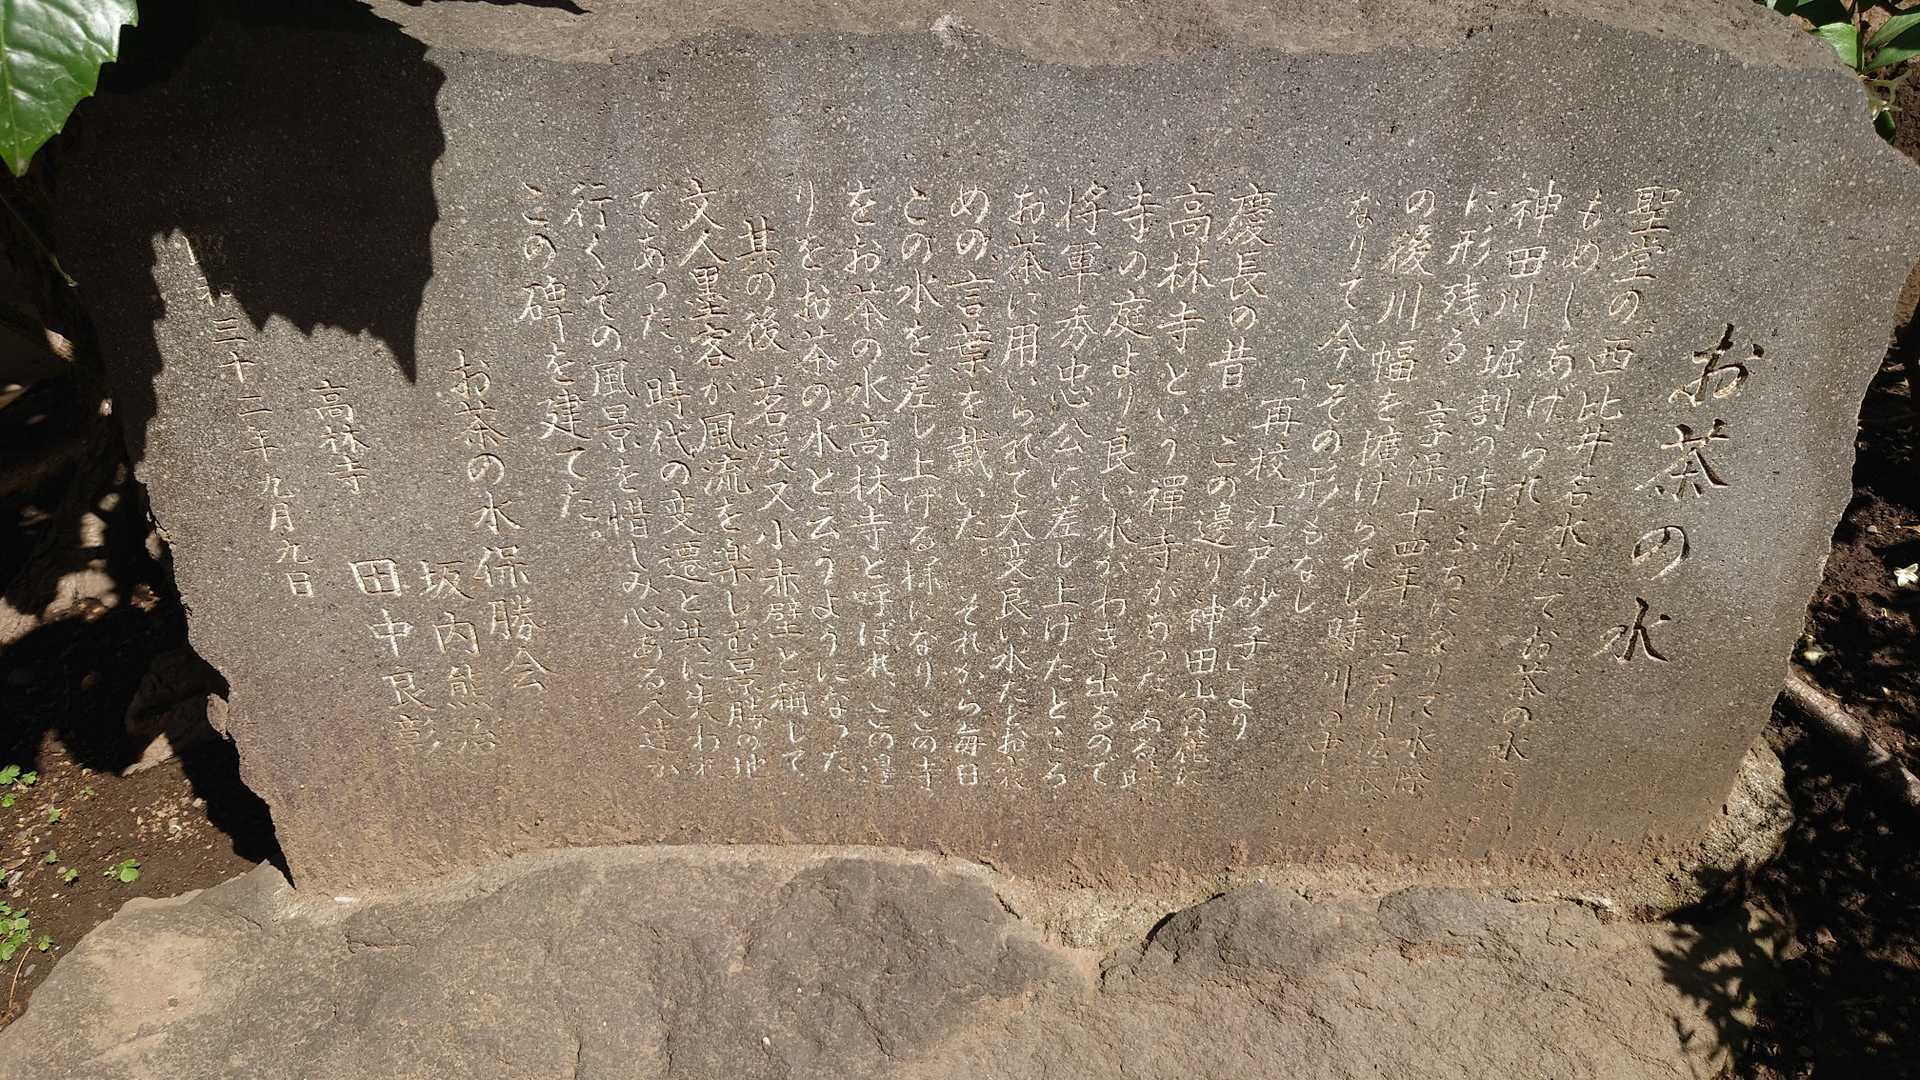 お茶の水
聖堂の西比井名水にてお茶の水に
もめしあげられたり
神田川堀割の時ふちになりて水際
に形残る 享保十四年 江戸川拡張
の後川幅を擴げられし時川の中に
なりて今その形もなし
「再校江戸砂子」より
慶長の昔 この邊り神田山の麓に
高林寺という禪寺があった ある時
寺の庭より良い水がわき出るので
将軍秀忠公に差し上げたところ
お茶に用いられて大変良い水だとお褒
めの言葉を戴いた。それから毎日
この水を差し上げる様になり この寺
をお茶の水高林寺と呼ばれ、この邊
りをお茶の水と云うようになった
其の後 茗渓又小赤壁と稱して
文人墨客が風流を楽しむ景勝の地
であった。時代の変遷と共に失われ
行くその風景を惜しみ心ある人達が
この碑を建てた。
お茶の水保勝会
坂内熊治
高林寺
田中良彰
三十二年九月九日